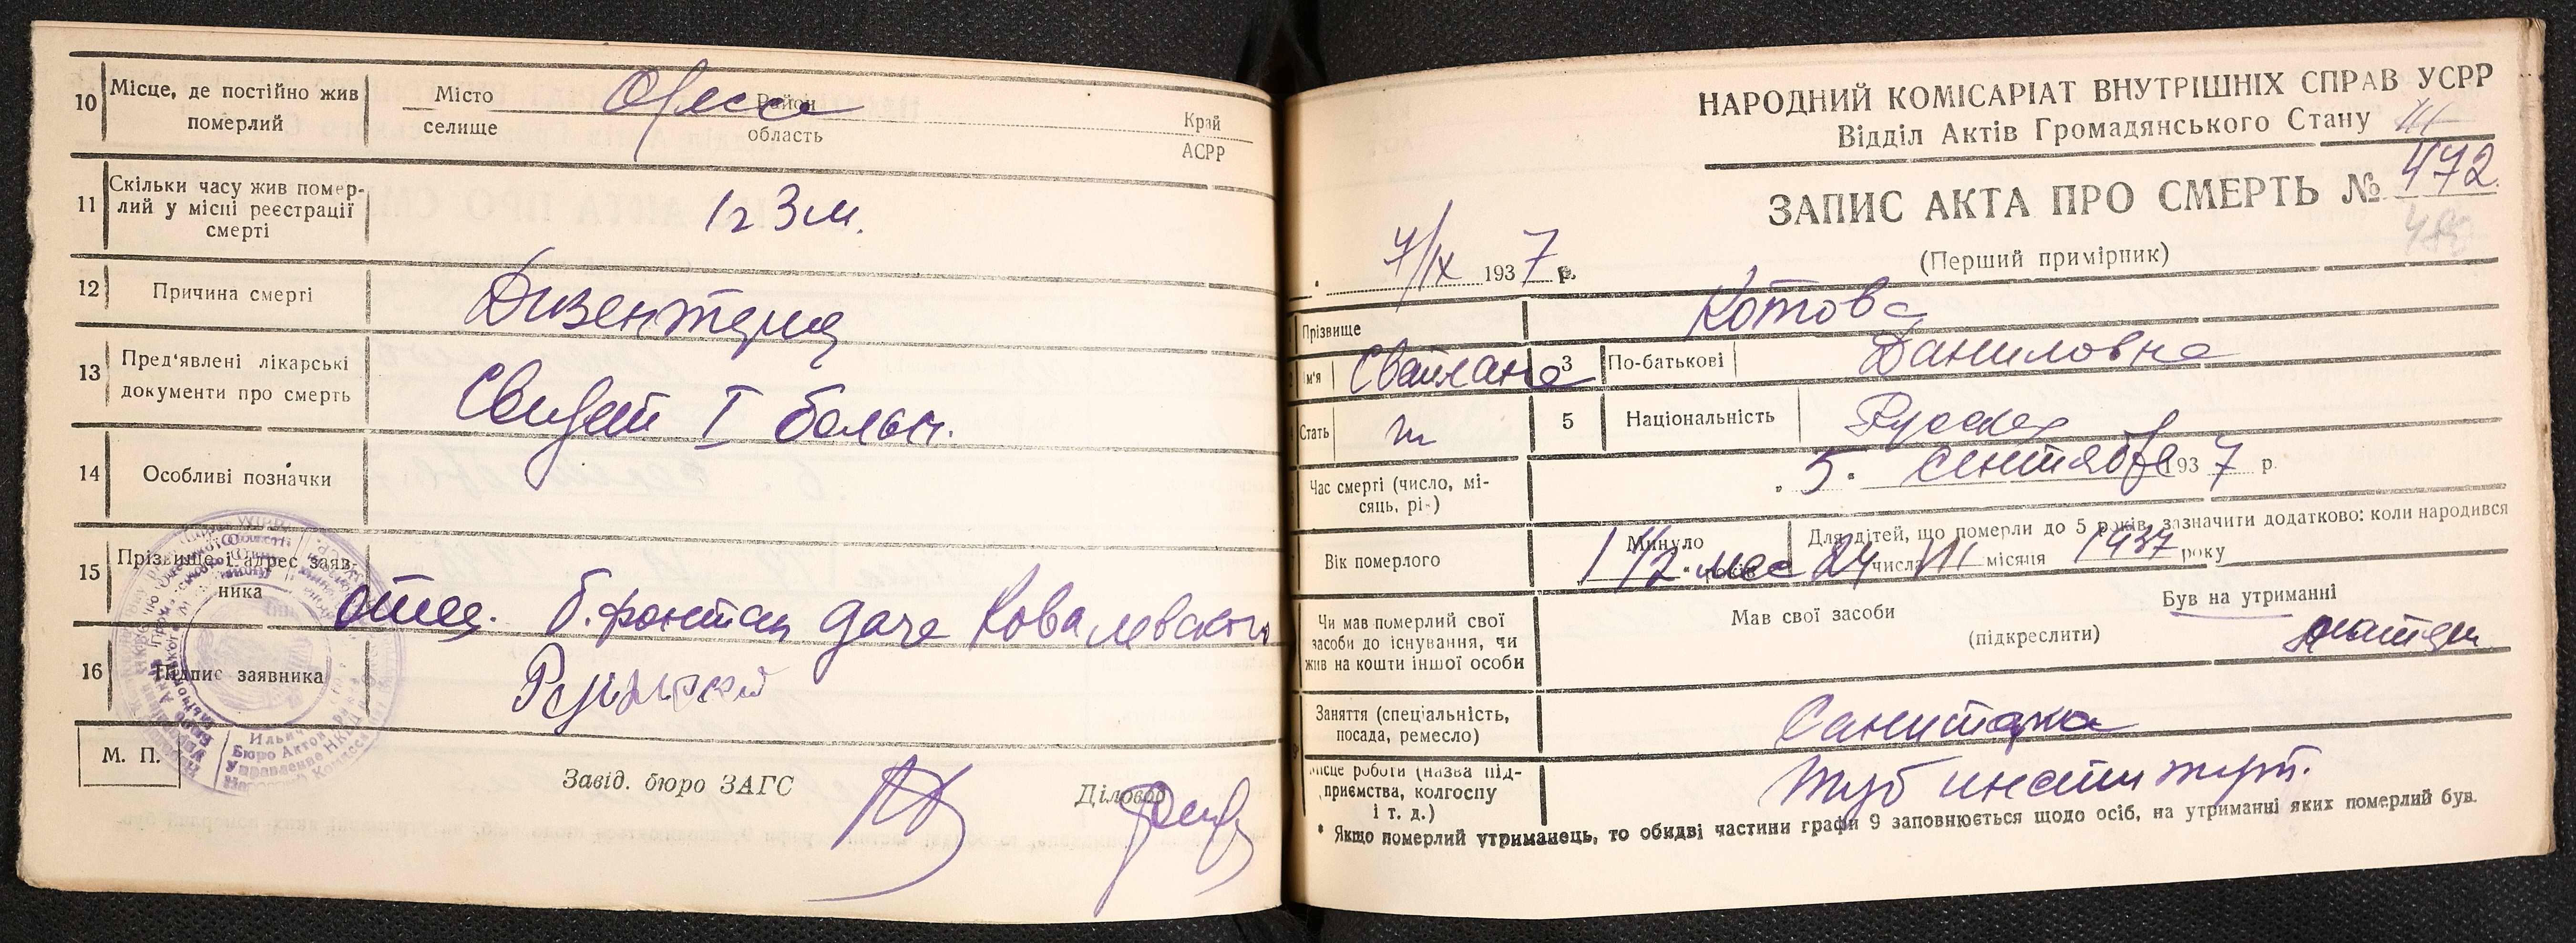 10 Місце, де постійно жив померлий Місто селище Одесса Район область Край АСРР
11 Скільки часу жив помер-
лий у місці реєстрації
смерті 1 г 3 м.
12 Причина смерті Дизентерия
13 Пред'явлені лікарські
документи про смерть Свидет I больн.
14 Особливі позначки
15 Прізвище і адрес заяв-
ника отец. б. фонтан дача Ковалевского
16 Підпис заявника
М. П. Завід. бюро ЗАГС Діловод
НАРОДНИЙ КОМІСАРІАТ ВНУТРІШНІХ СПРАВ УСРР
Відділ Актів Громадянського Стану
ЗАПИС АКТА ПРО СМЕРТЬ № 472.
(Перший примірник)
7/IX 1937 р.
Прізвище Котова
Ім'я Светлана 3 По-батькові Даниловна
Стать ж 5 Національність Русская
Час смерті (число, мі-
сяць, рік) „5" сентября 1937 р.
Вік померлого Минуло 1 1/2 мес років Для дітей, що померли до 5 років, зазначити додатково: коли народився
24 числа VII місяця 1937 року
Чи мав померлий свої
засоби до існування, чи
жив на кошти іншої особи Мав свої засоби (підкреслити) Був на утриманні матери
Заняття (спеціальність,
посада, ремесло) Санитарка
Місце роботи (назва під-
приємства, колгоспу
і т. д.) Туб институт.
* Якщо померлий утриманець, то обидві частини графи 9 заповнюється щодо осіб, на утриманні яких померлий був.